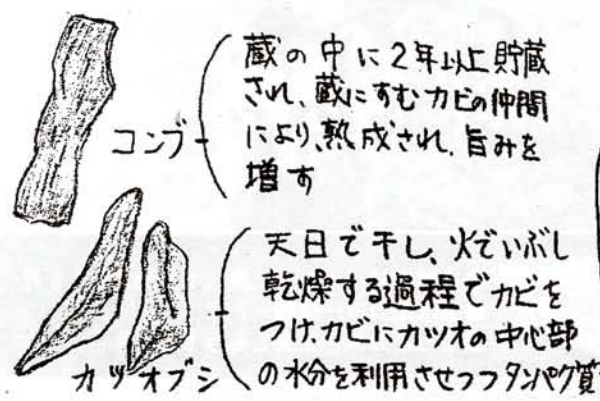 コンブ
蔵の中に2年以上貯蔵
され、蔵にすむカビの仲間
により、熟成され、旨みを
増す
カツオブシ
天日で干し、火でいぶし
乾燥する過程でカビを
つけ、カビにカツオの中心部
の水分を利用させつつタンパク質